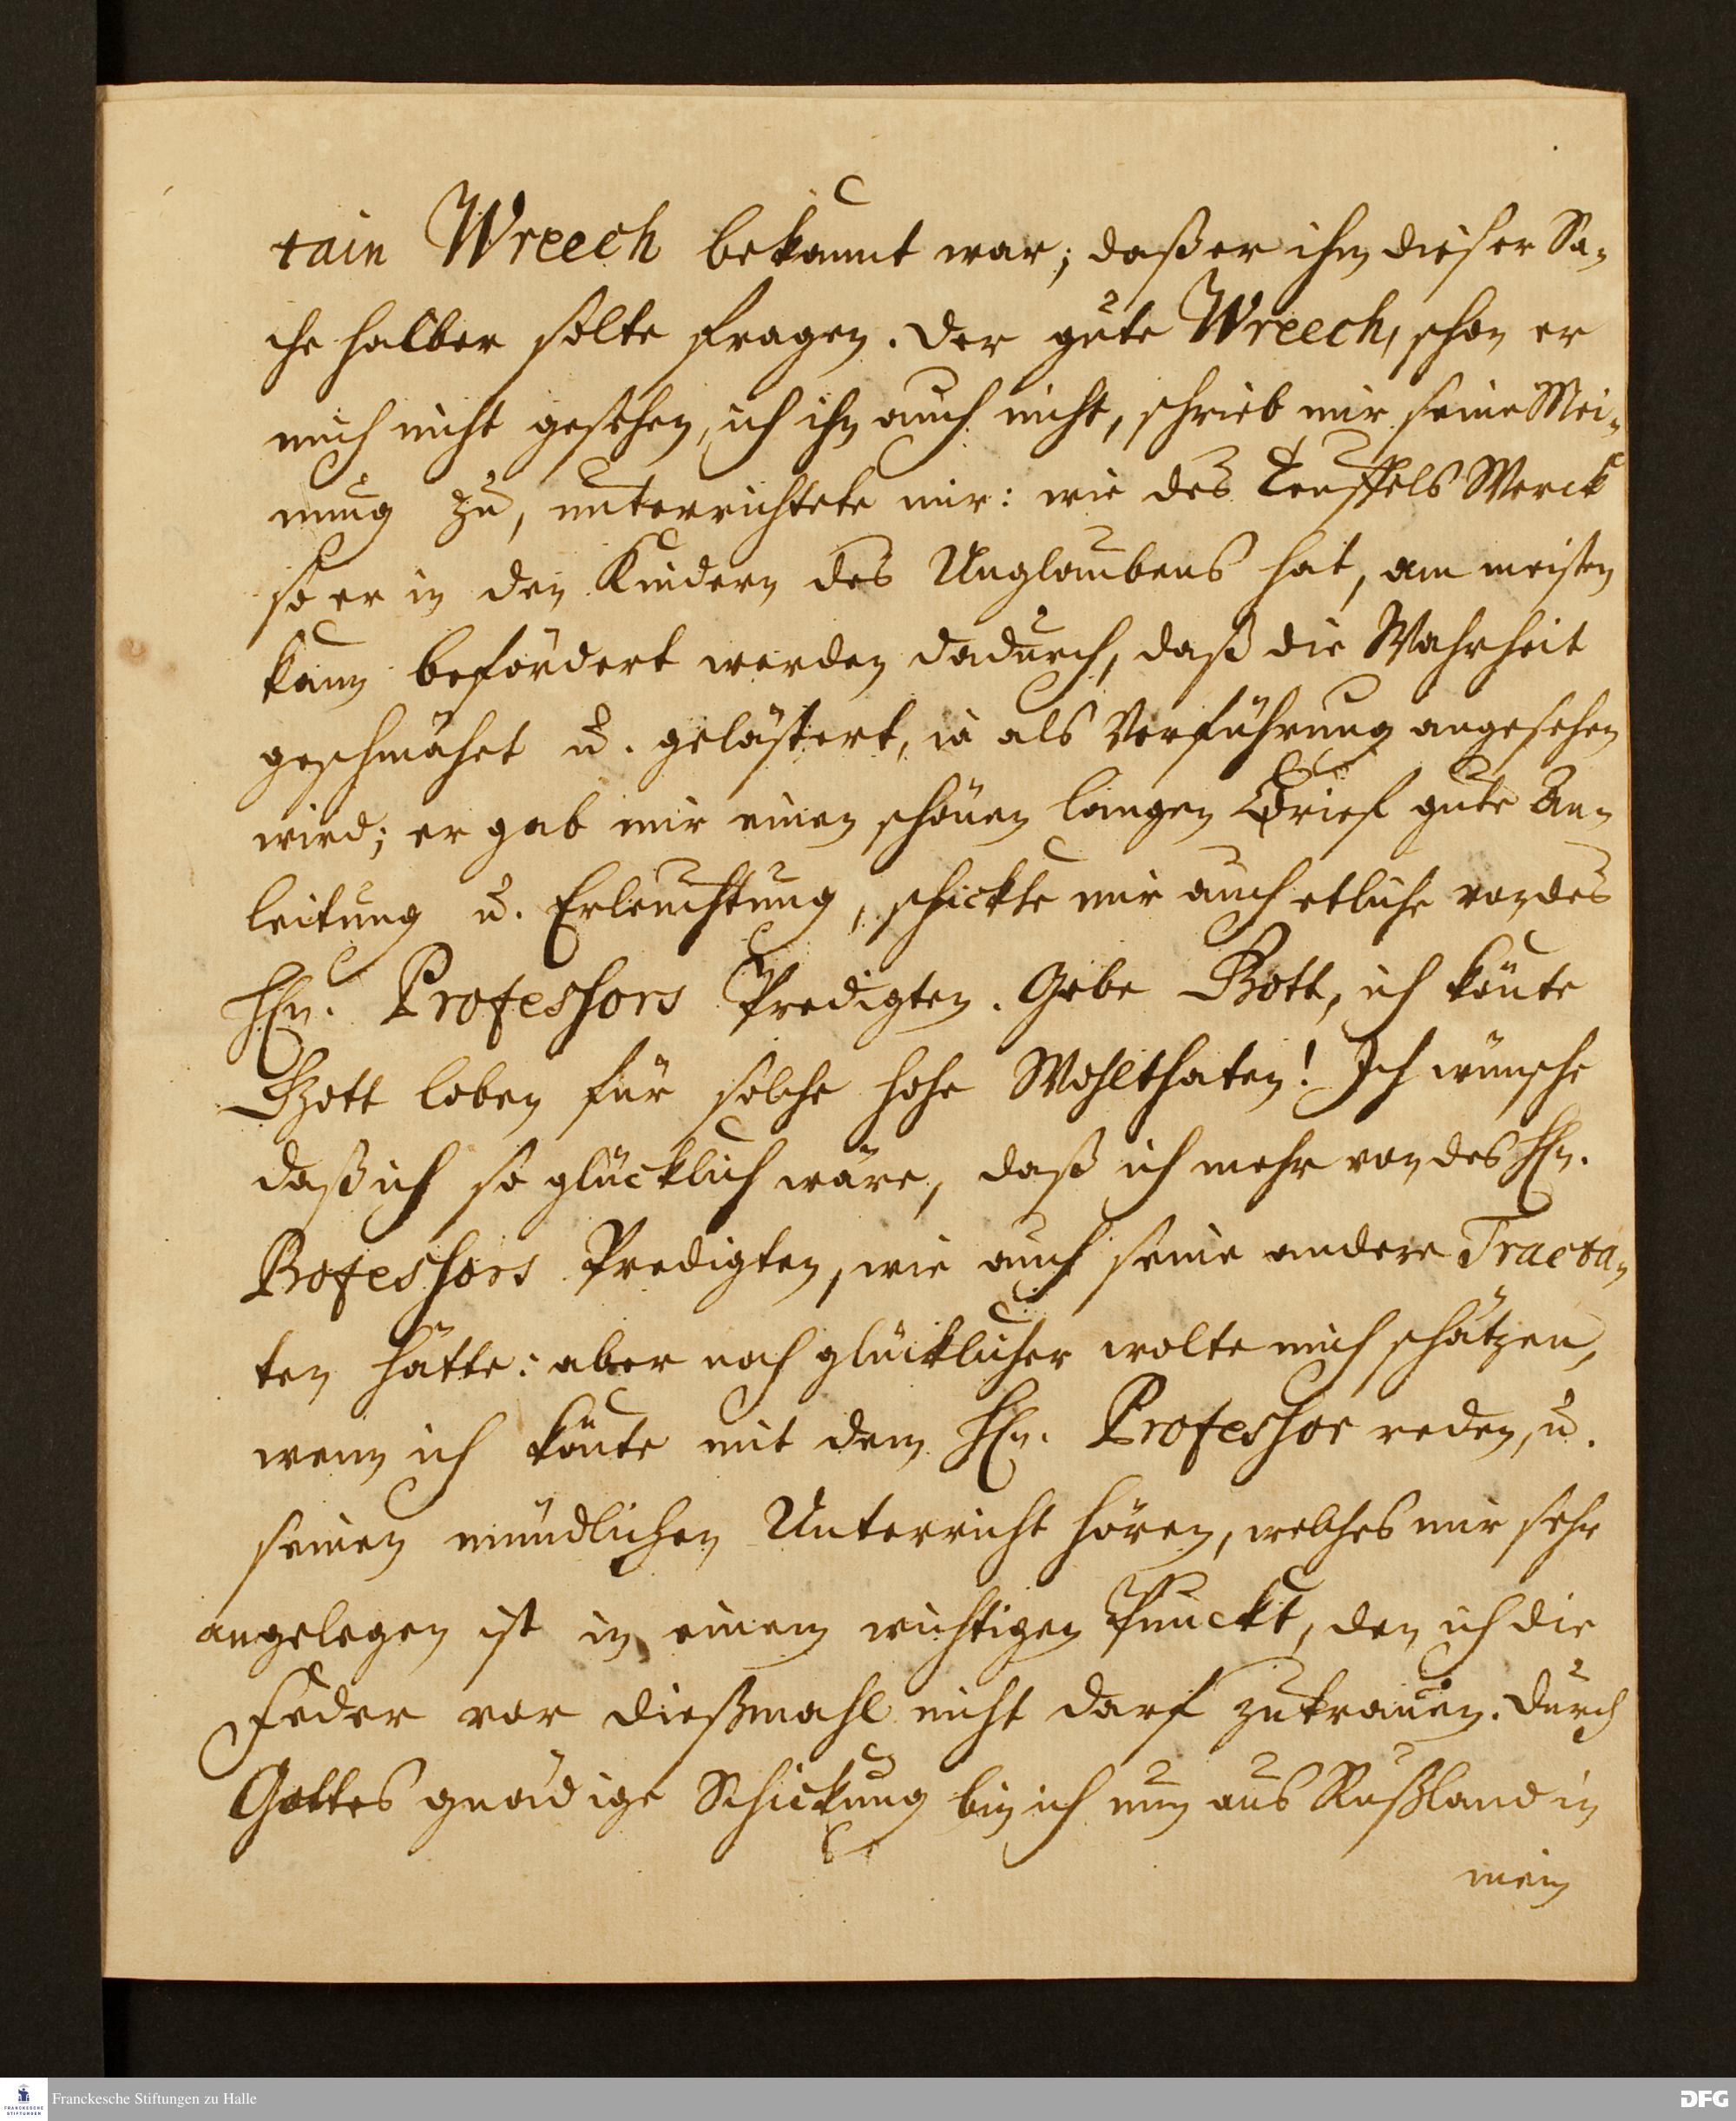 tain Wreech bekannt war; daß er ihn dieser Sa-
che halber solte fragen. Der gute Wreech, schon er
mich nicht gesehen, ich ihn auch nicht, schrieb mir seine Mei-
nung zu, unterrichtete mir: wie des Teuffels Werck
so er in den Kindern des Unglaubens hat, am meisten
kann befördert werden dadurch, daß die Wahrheit
geschmähet u. gelästert, ia als Verführung angesehen
wird; er gab mir einen schönen langen Brief gute An-
leitung u. Erleuchtung, schickte mir auch etliche von des
Hn. Professors Predigten. Gebe Gott, ich könte
Gott loben für solche hohe Wohlthaten! Ich wünsche
daß ich so glücklich wäre, daß ich mehr von des Hn.
Professors Predigten, wie auch seine andere Tracta-
ten hätte: aber noch glücklicher wolte mich schätzen,
wenn ich könte mit dem Hn. Professor reden, u.
seinen mündlichen Unterricht hören, welches mir sehr
angelegen ist in einem wichtigen Punckt, den ich die
Feder vor dießmahl nicht darf zutrauen. Durch
Gottes gnädige Schickung bin ich nun aus Rußland in
mein
Franckesche Stiftungen zu Halle
FRANCKESCHE STIFTUNGEN
DFG